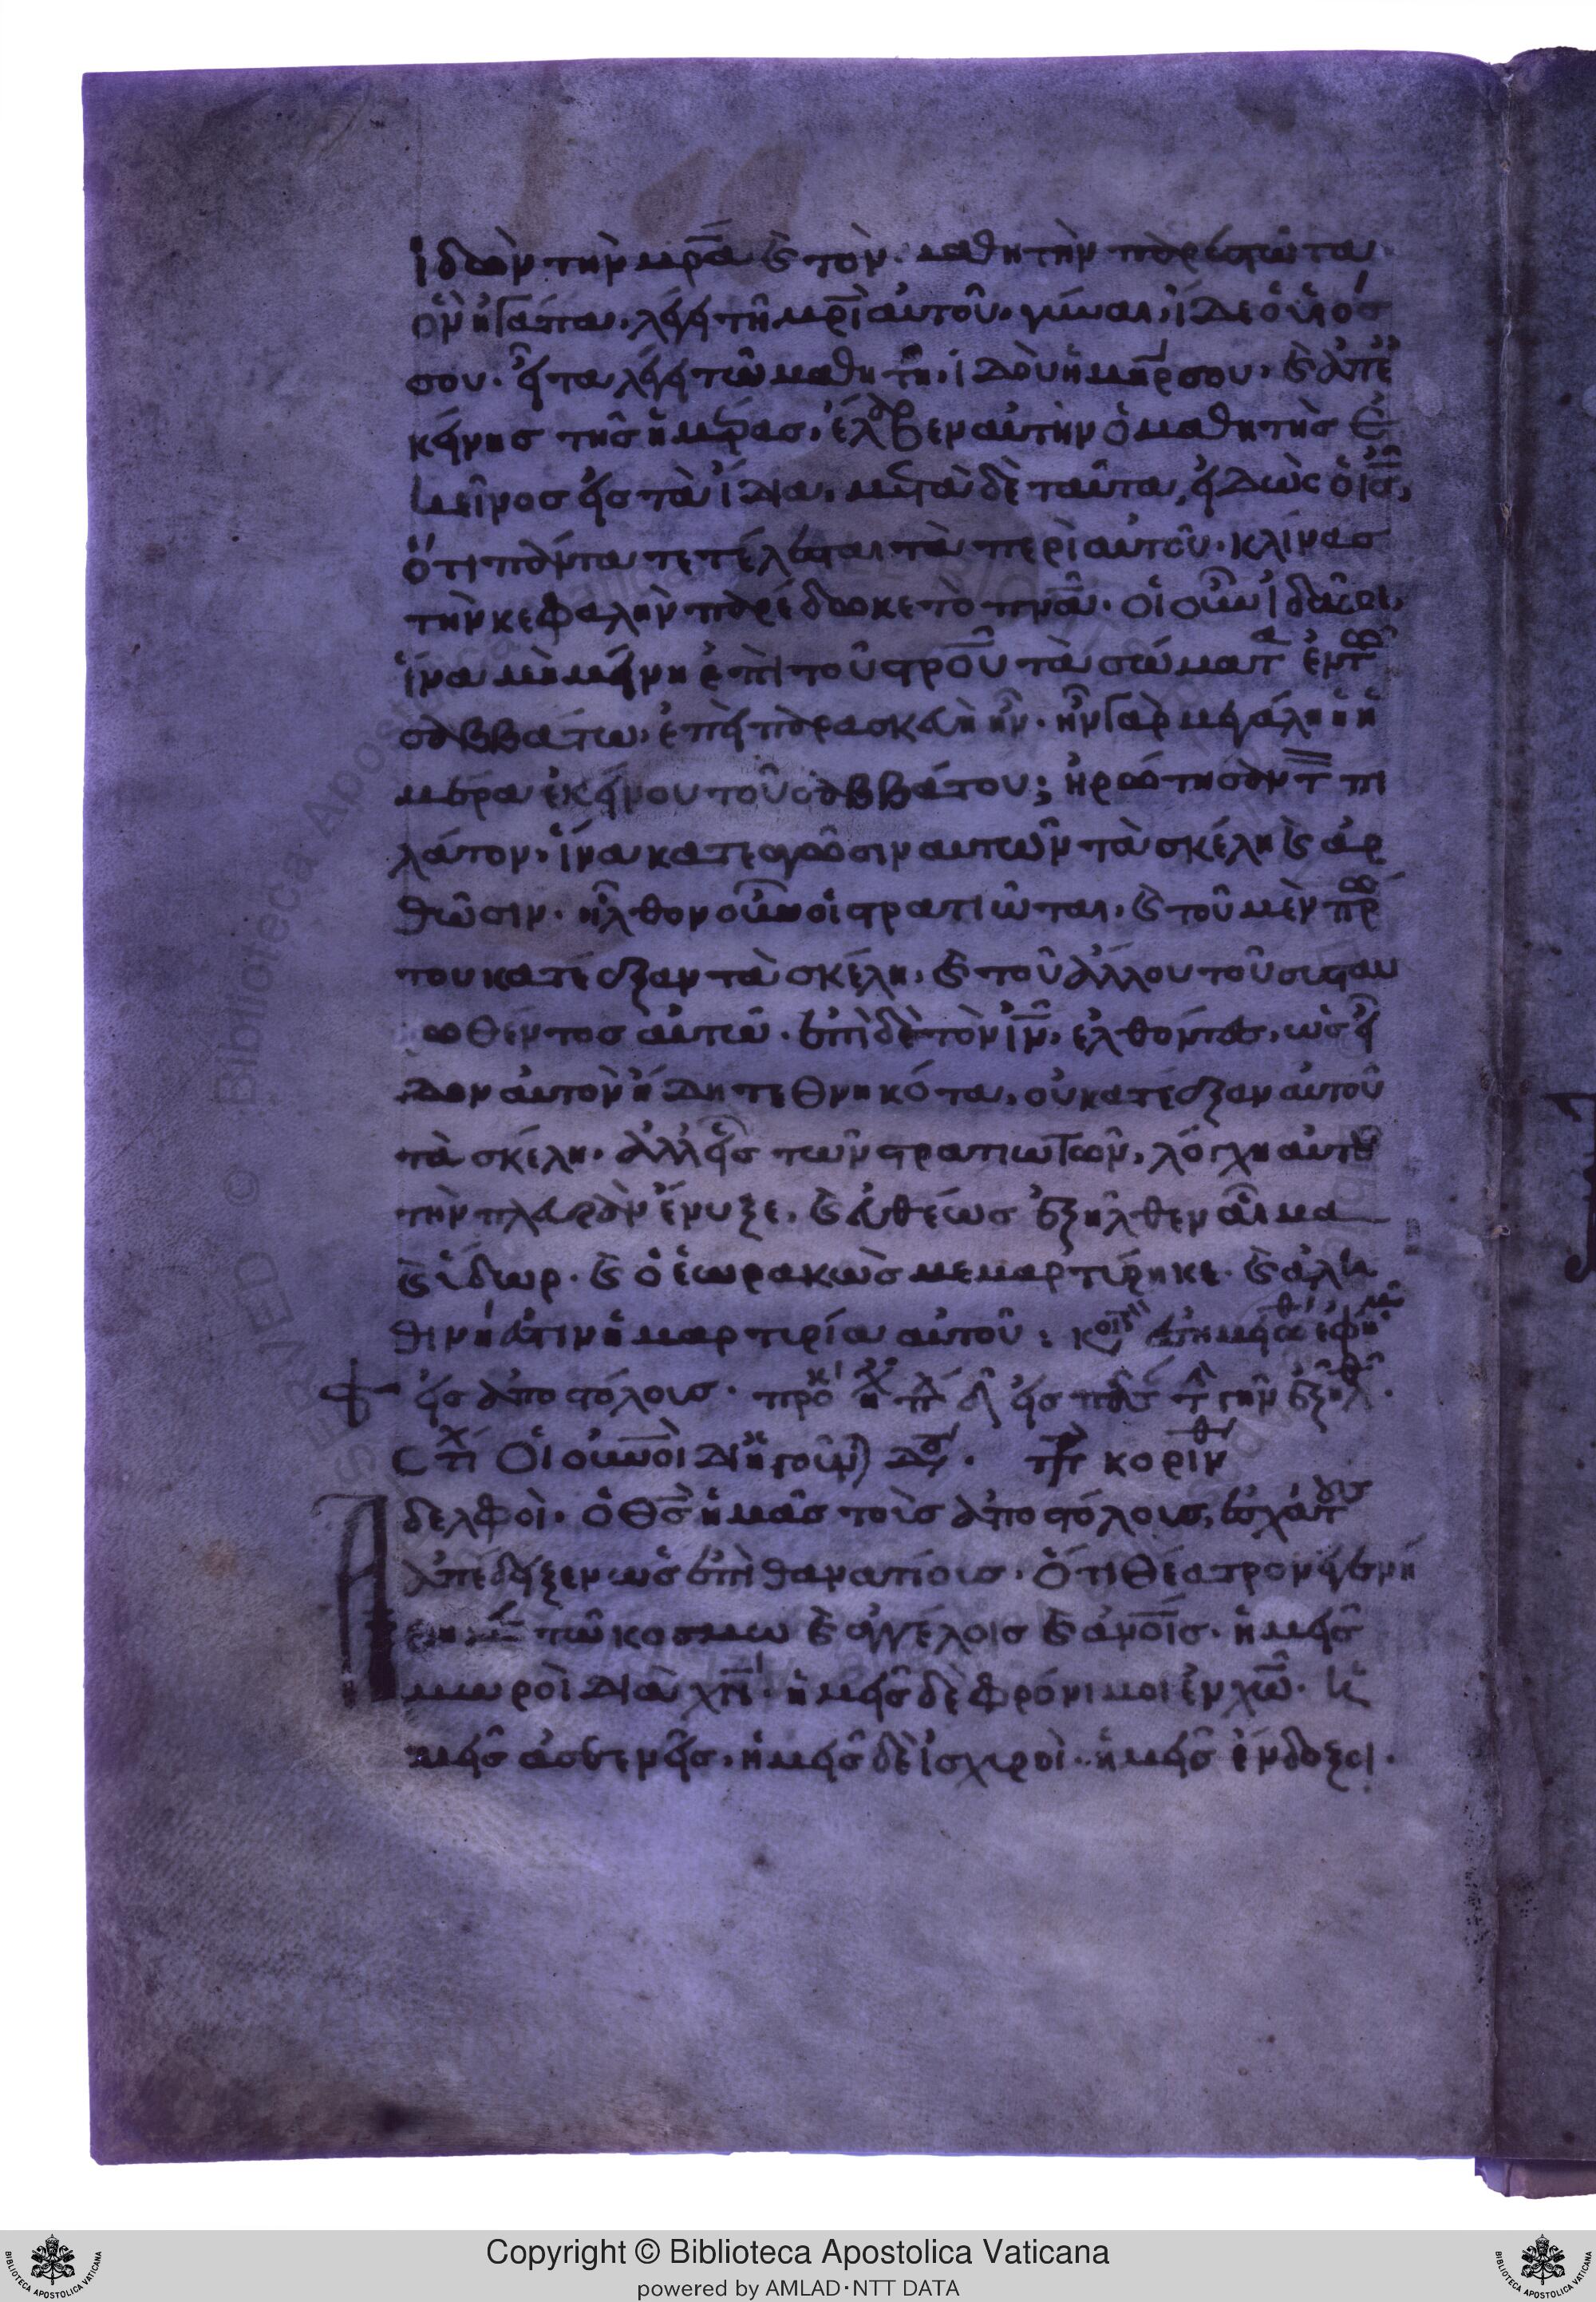 ἰδὼν τὴν μρ̅α καὶ τὸν μαθητὴν παρεστῶτα
ὃν ἠγάπα, λέγει τῆ μρ̅ὶ αὐτοῦ, γύναι, ἴδε ὁ υἱός
σου. εἶτα λέγει τῶ μαθητῆ, ἰδοὺ ἡ μήρ̅ σου, καὶ ἀπ' ἐ
κείνης τῆς ἡμέρας, ἔλαβεν αὐτὴν ὁ μαθητὴς ἐ
κεῖνος εἰς τὰ ἴδια, μετὰ δὲ ταῦτα, εἰδὼς ὁ ις̅,
ὅτι πάντα τετέλεσται τὰ περὶ αὐτοῦ. κλίνας
τὴν κεφαλὴν παρέδωκε τὸ πνα̅. οἱ οὖν ἰδαῖοι,
ἵνα μὴ μείνη ἐπὶ τοῦ στρου̅ τὰ σώματα ἐν τῶ
σαββάτω, ἐπεὶ παρασκευὴ ἦν. ἦν γὰρ μεγάλη ἡ ἡ
μέρα ἐκείνου τοῦ σαββάτου; ἠρώτησαν τ πι
λάτον, ἵνα κατεαγῶσιν αὐτῶν τὰ σκέλη καὶ ἀρ
θῶσιν. ἦλθον οὖν οἱ στρατιῶται, καὶ τοῦ μὲν πρω
του κατέαξαν τὰ σκέλη, καὶ τοῦ ἄλλου τοῦ συσταυ
ρωθέντος αὐτῶ. ἐπὶ δὲ τὸν ιν̅, ἐλθόντες, ὡς εἶ
δον αὐτὸν ἤδη τεθνηκότα, οὐ κατέαξαν αὐτοῦ
τὰ σκέλη. ἀλλ' εἷς τῶν στρατιωτῶν, λόγχη αὐτοῦ
τὴν πλευρὰν ἔνυξε, καὶ εὐθέως ἐξῆλθεν αἷμα
καὶ ὕδωρ. καὶ ὁ ἑωρακὼς μεμαρτύρηκε. καὶ ἀλη
θινή ἐστιν ἡ μαρτιρία αὐτοῦ:
εἰς ἀποστόλους. εἰς πᾶσ τ γῆν ἐξῆλθ.
Στι Οἱ οὐνοὶ διηγοῦντ κοριν
Ἀδελφοὶ. ὁ θς̅ ἡμᾶς τοὺς ἀποστόλους, ἐσχάτους
ἀπέδειξεν ὡς ἐπιθανατίους. ὅτι θέατρον ἐγενή
θημεν τῶ κόσμω καὶ ἀγγέλοις καὶ ἀνοις̅. ἡμεῖς
μωροὶ διὰ χν̅. ὑμεῖς δὲ φρόνιμοι ἐν χω̅. ἡ
μεῖς ἀσθενεῖς, ὑμεῖς δὲ ἰσχυροὶ. ὑμεῖς ἔνδοξοι.